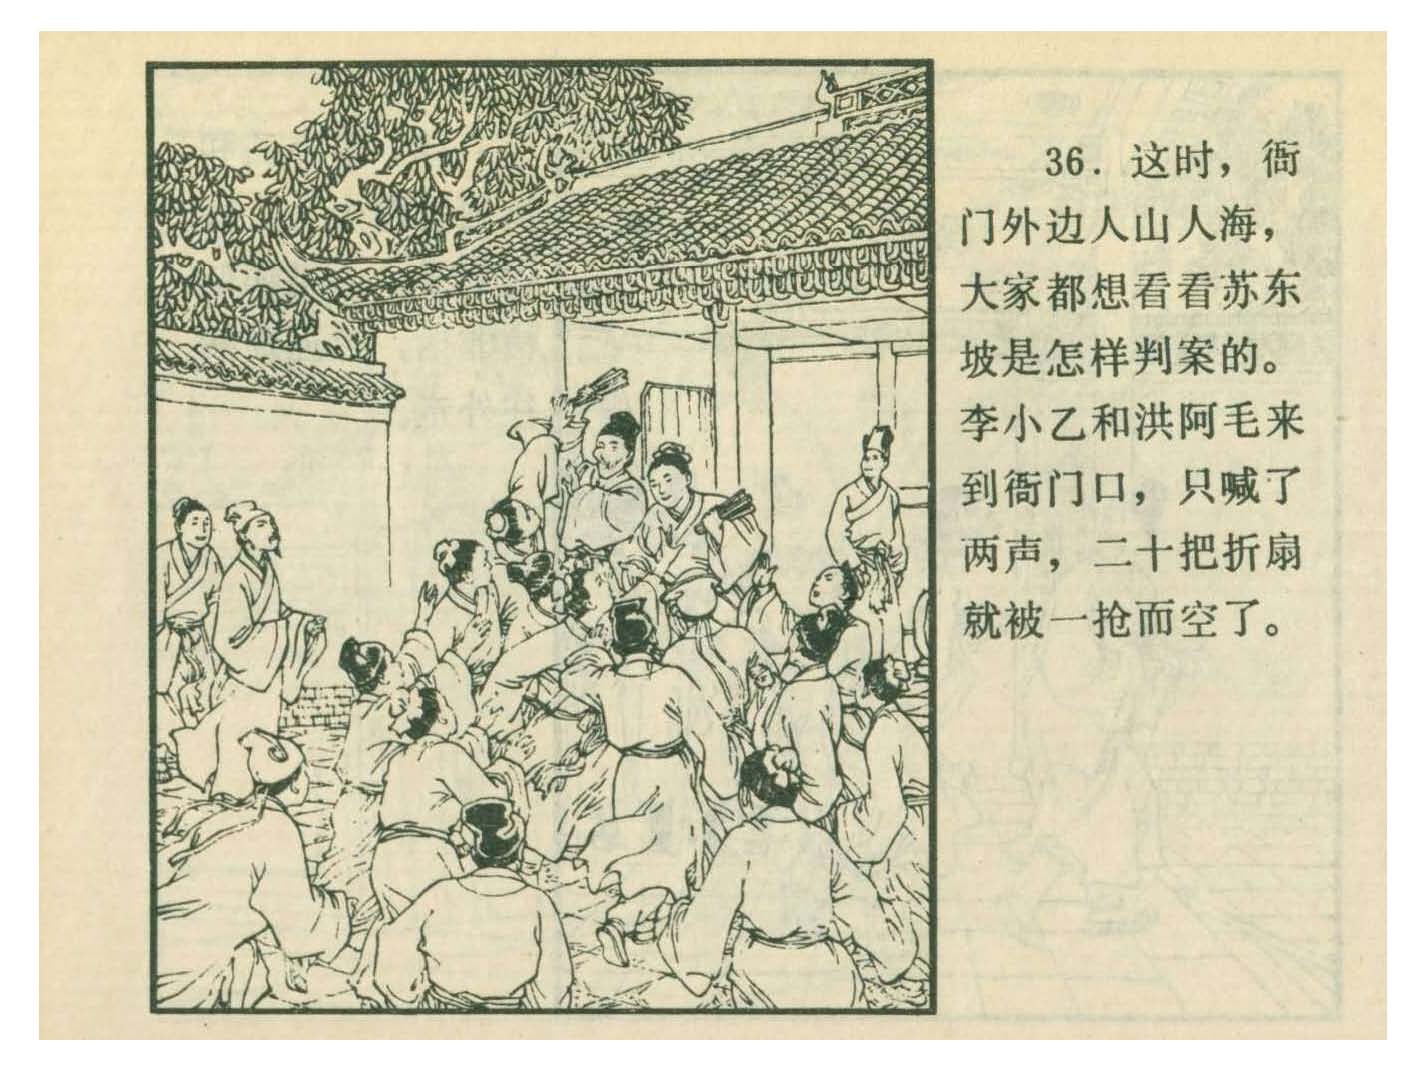 36. 这时，衙
门外边人山人海，
大家都想看看苏东
坡是怎样判案的。
李小乙和洪阿毛来
到衙门口，只喊了
两声，二十把折扇
就被一抢而空了。